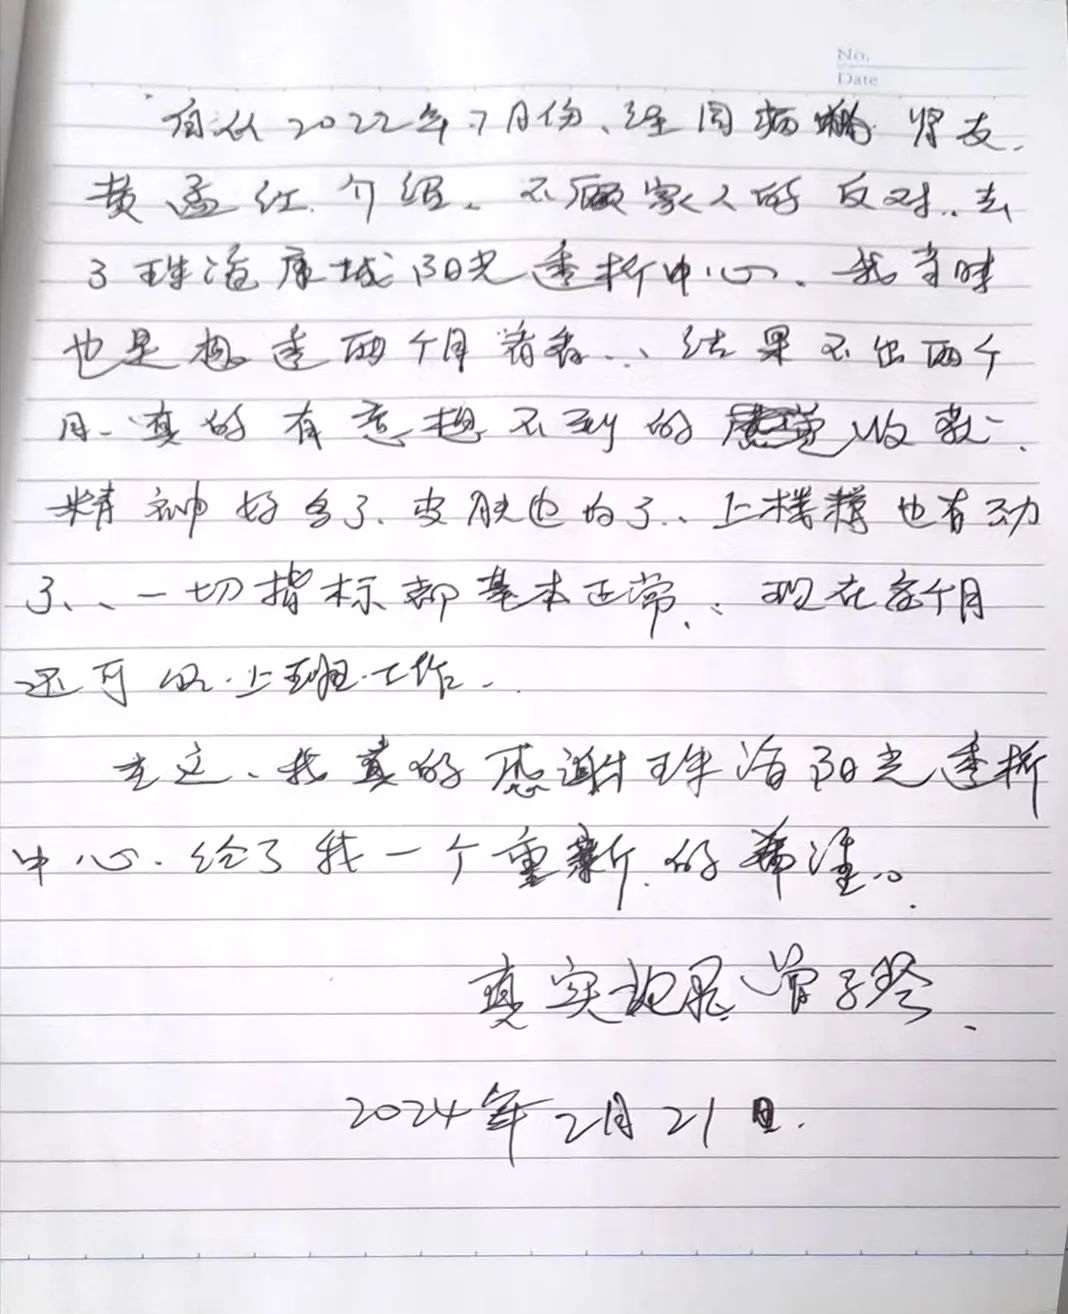 No.
Date
自从2022年7月份、经同病 肾友.
黄孟红介绍、不顾家人的反对..去
了珠海康城阳光透析中心、我当时
也是想透两个月看看..、结果不出两个
月、真的有意想不到的 收获.
精神好多了、皮肤也白了..上楼梯也有动
了、、一切指标都基本正常、:现在每个月
还可以.上班工作..
去这、我真的感谢珠海阳光透析
中心.给了我一个重新.的希望。.
真实 曾子琴.
2024年2月21日.